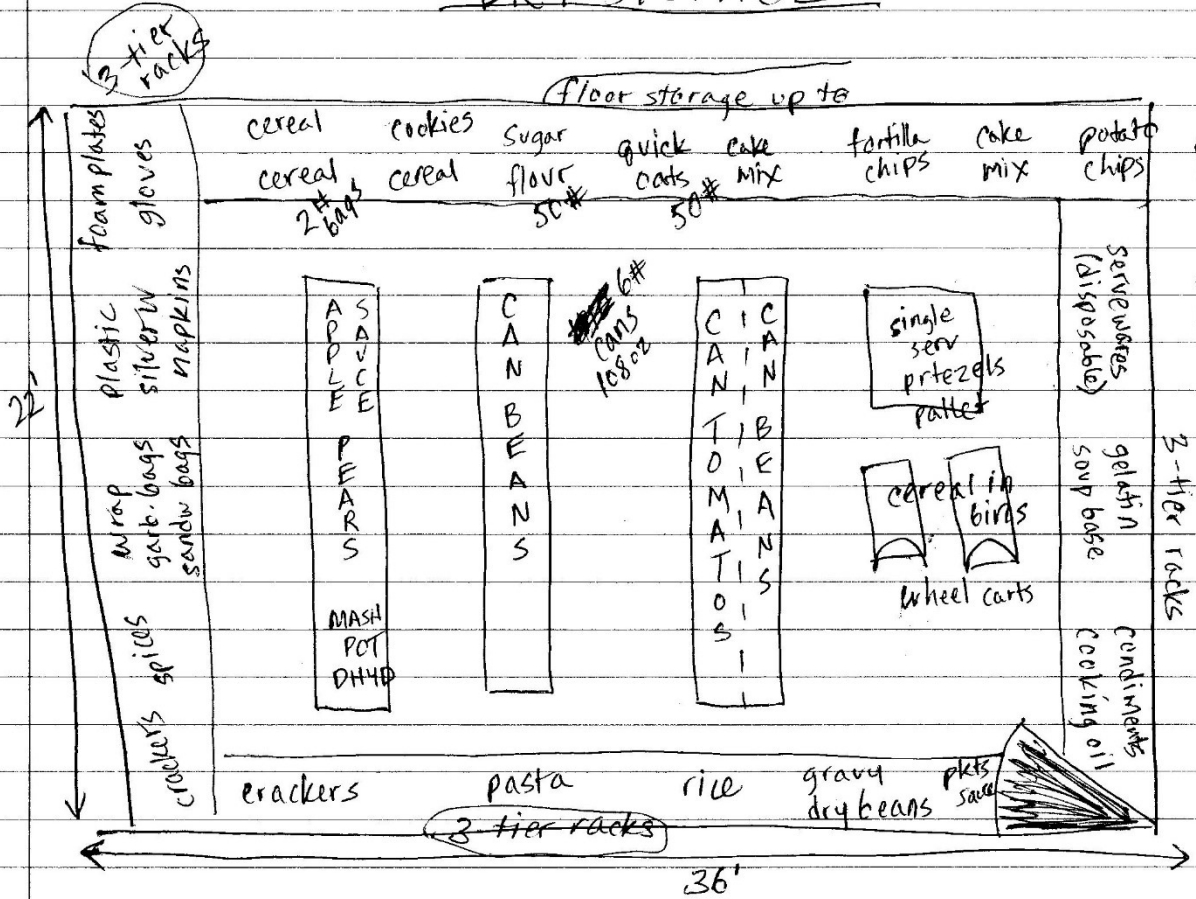 3-tier
racks
floor storage up to
foam plates
gloves
cereal
cookies
sugar
quick
cake
tortilla
cake
potato
cereal
cereal
flour
oats
mix
chips
mix
chips
2#
bags
50#
50#
plastic
silverw
napkins
wrap
garb. bags
sandw bags
spices
crackers
22'
APPLE
SAUCE
PEARS
MASH
POT
DHYD
CAN BEANS
6#
cans
108oz
CAN TOMATOS
CAN BEANS
single
serv
prtezels
pallet
cereal in
bins
wheel carts
servewares
(disposable)
gelatin
soup base
condiments
cooking oil
3-tier racks
crackers
pasta
rice
gravy
dry beans
pkts
sauce
3-tier racks
36'